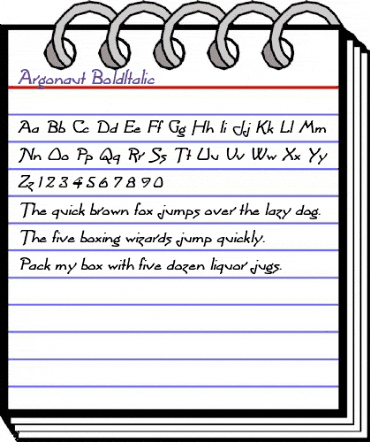 Argonaut BoldItalic
Aa Bb Cc Dd Ee Ff Gg Hh Ii Jj Kk Ll Mm
Nn Oo Pp Qq Rr Ss Tt Uu Vv Ww Xx Yy
Zz 1 2 3 4 5 6 7 8 9 0
The quick brown fox jumps over the lazy dog.
The five boxing wizards jump quickly.
Pack my box with five dozen liquor jugs.